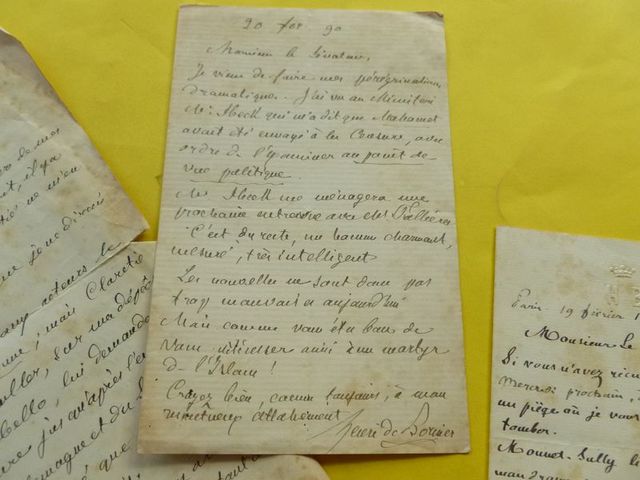 20 fév 90
Monsieur le Sénateur,
Je viens de faire mes pérégrinations
dramatiques. J'ai vu au Ministère
Mr. Sbeck qui m'a dit que Mahomet
avait été envoyé à la Censure, avec
ordre de l'examiner au point de
vue politique.
Mr me ménagera une
prochaine entrevue avec Mr Fallières
C'est du reste, un homme charmant,
mesuré, très intelligent
Les nouvelles ne sont donc pas
trop mauvaises aujourd'hui
Mais comme vous êtes bon de
vous intéresser ainsi à un martyr
de l'Islam !
Croyez bien, comme toujours, à mon
attachement
Henri de Bornier
de mes
il y a
ne m'en
je ne dirais
acteurs le
mais Claretie
sur ma
lui demande
jusqu'après l'
et du
Paris. 19 février 1
Monsieur Le
Si vous n'avez rien
mercredi prochain,
un piège où je vous
tomber.
Mounet-Sully